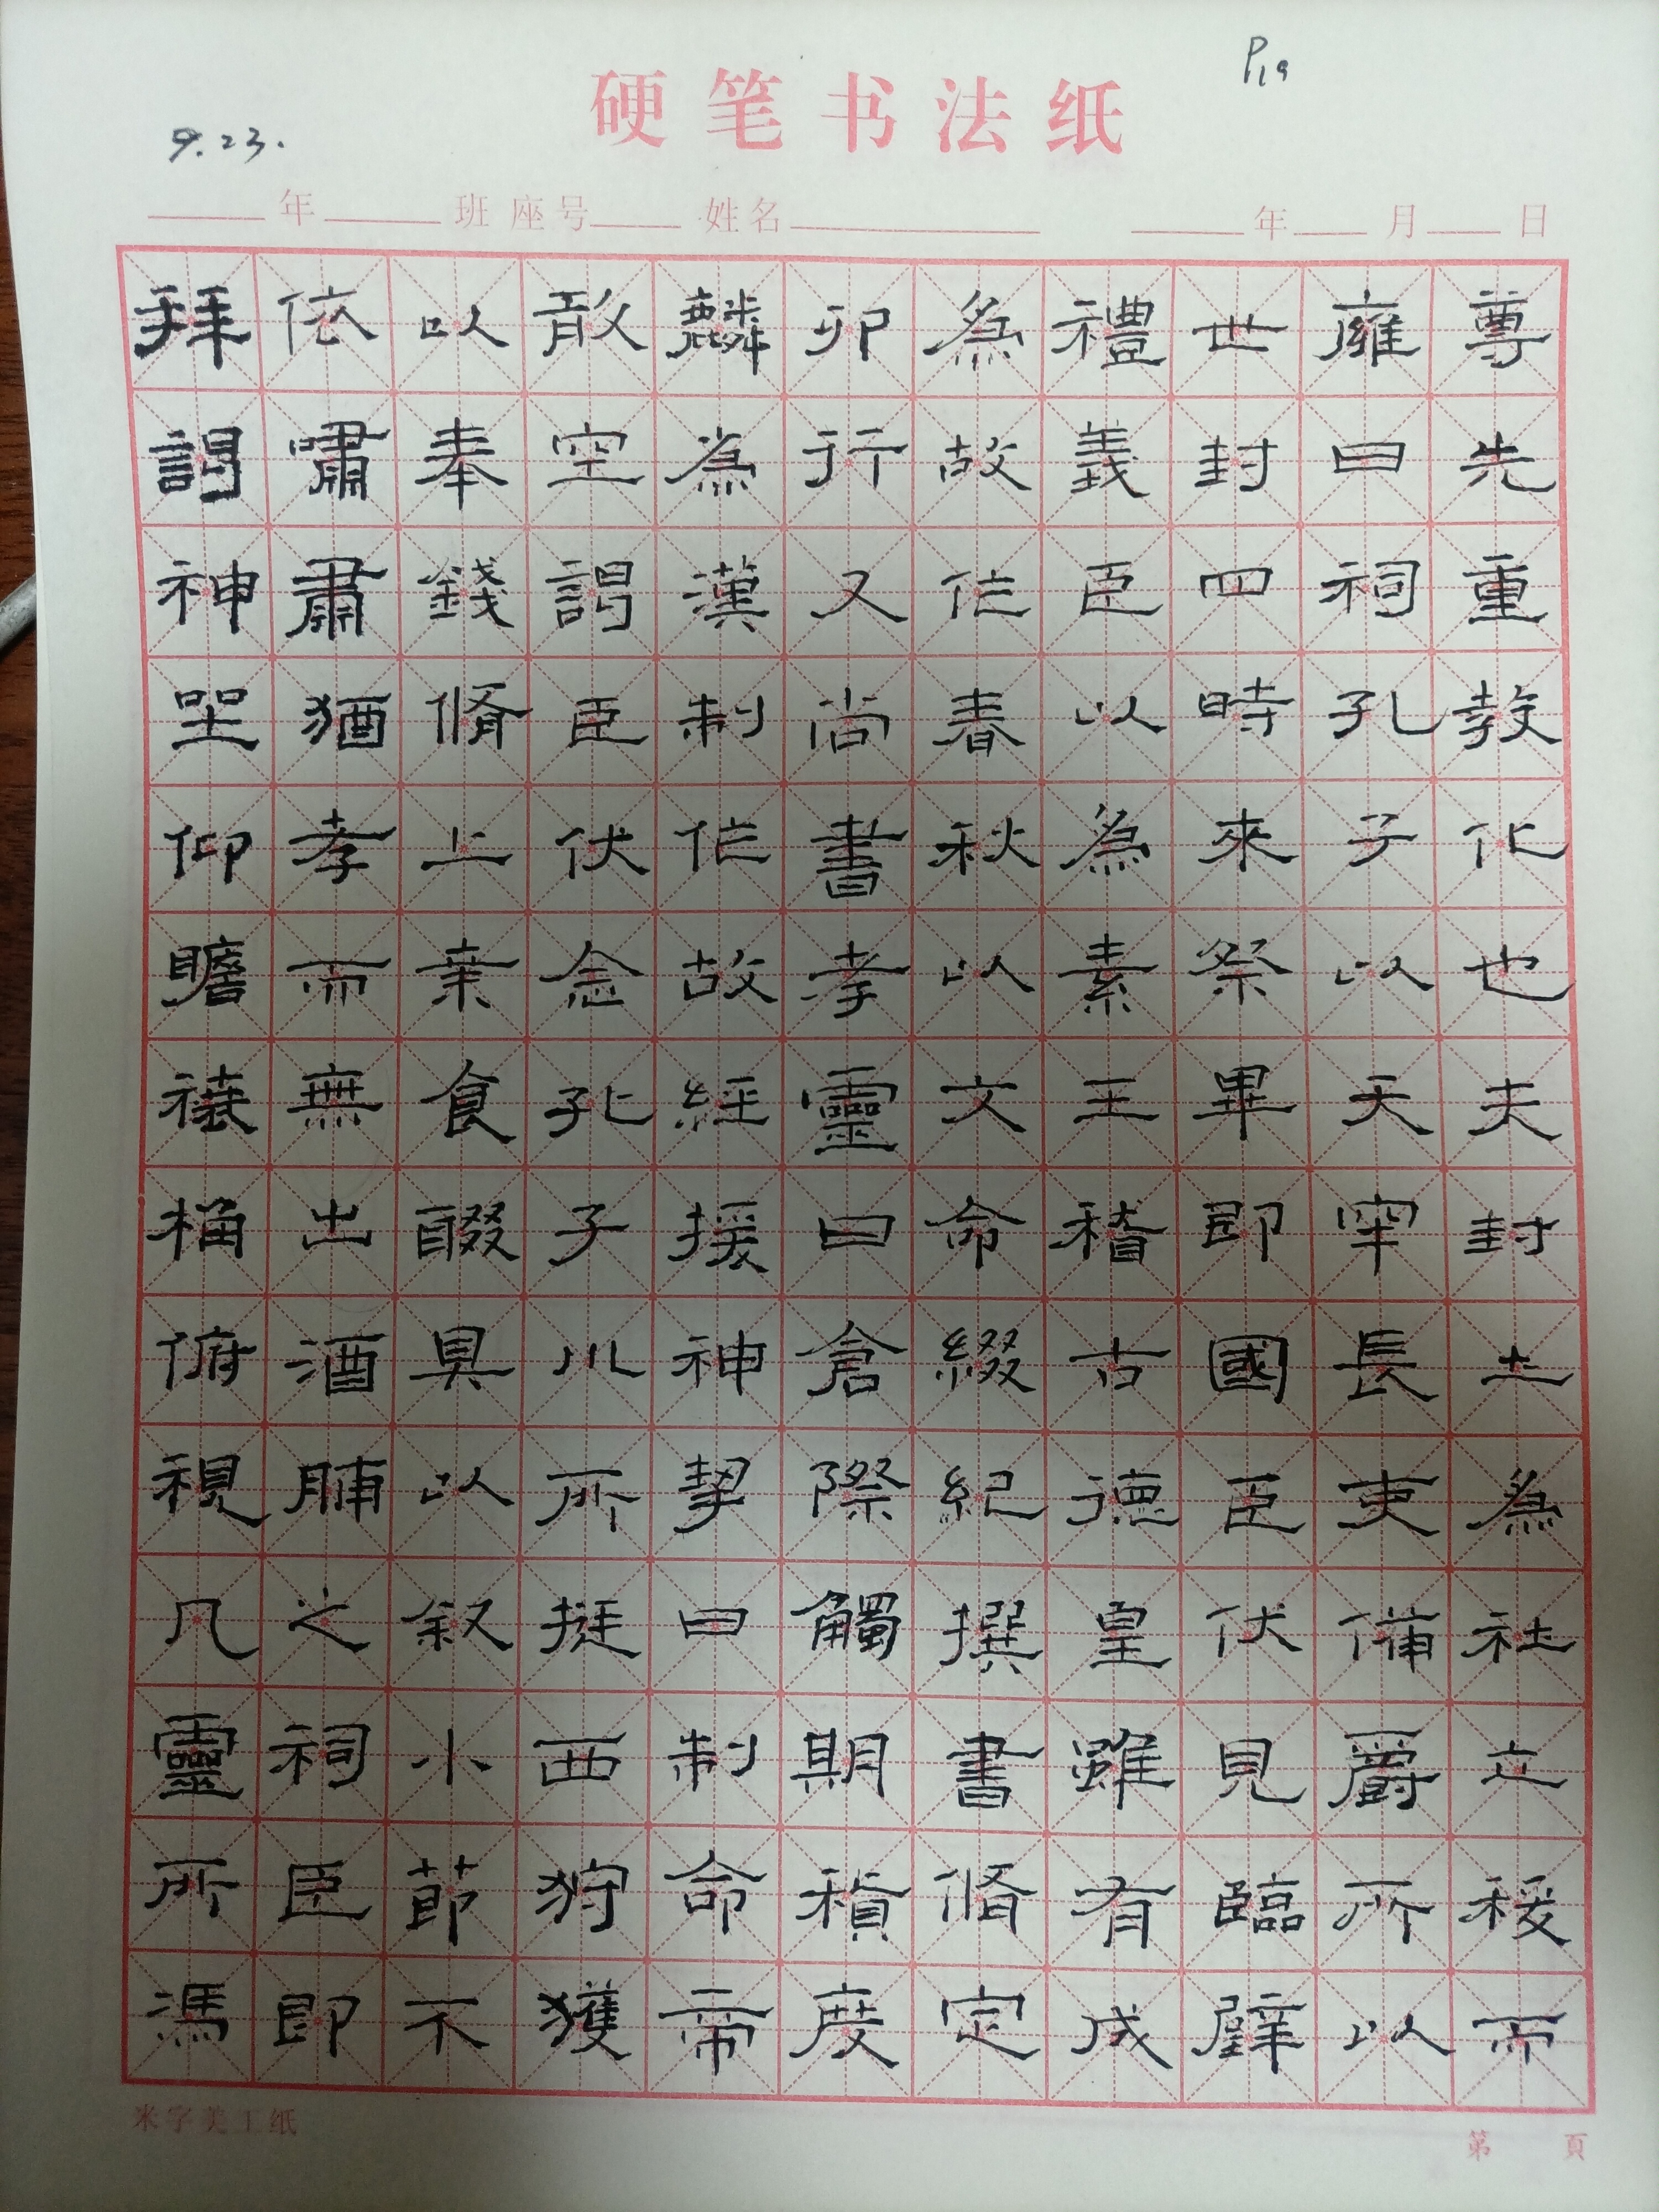 拜謁神坐仰瞻榱桷俯視几靈所馮
依嘯肅猶孝而無出酒脯之祠臣即
以奉錢脩上案食醊具以叙小節不
敢空謁臣伏念孔子川所挺西狩獲
麟為漢制作故經援神挈曰制命帝
卯行又尚書孝靈曰倉際觸期稽度
為故作春秋以文命綴紀撰書脩定
禮義臣以為素王稽古德皇雖有成
世封四時來祭畢即國臣伏見臨辟
雍曰祠孔子以天牢長吏備爵所以
尊先重教化也夫封土為社立稷而
硬笔书法纸
P19
9.23.
年 班 座号 姓名 年 月 日
米字美工纸
第 頁